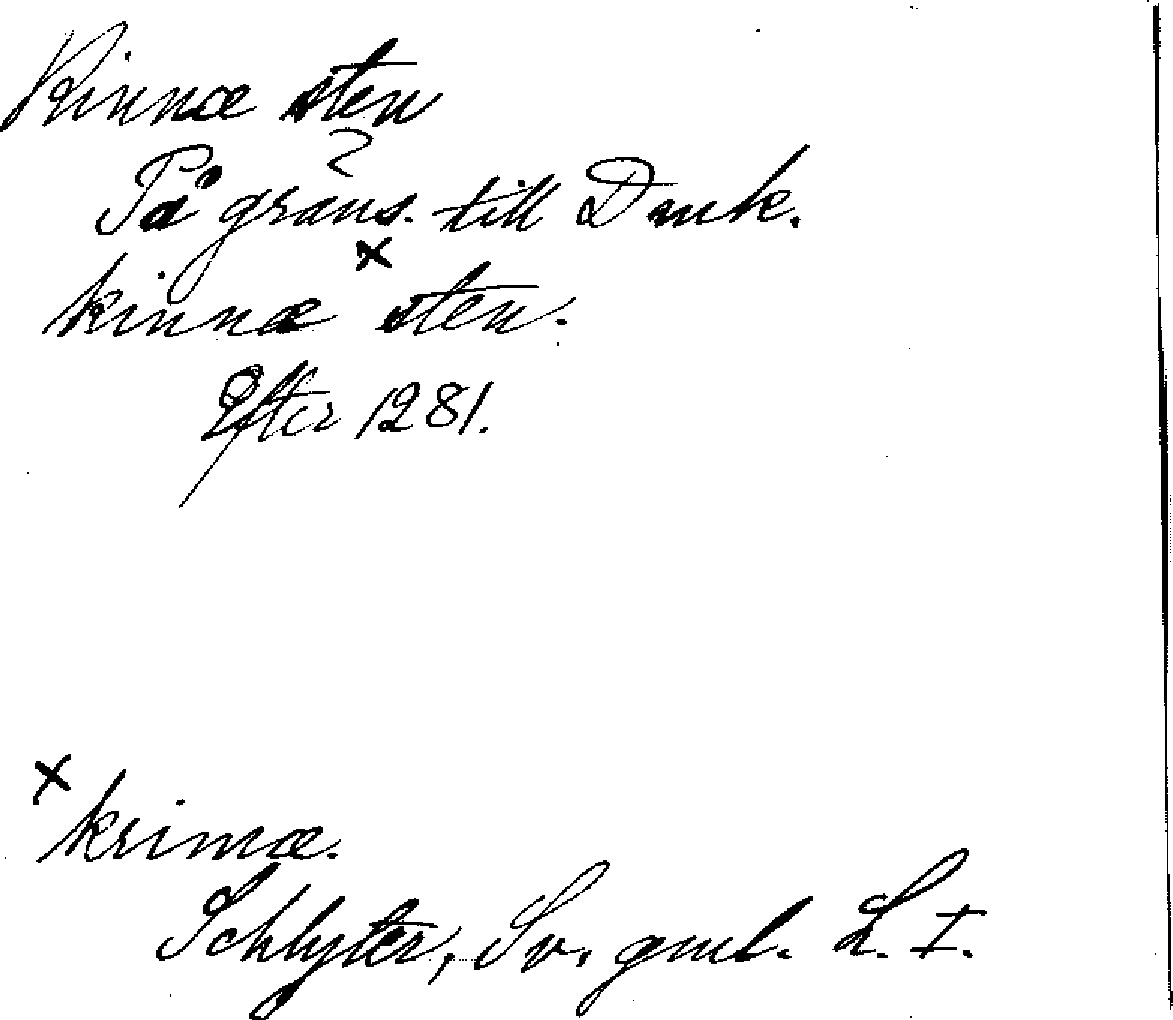 Kinnæ sten
?
På gräns. till Dmk.
x
kinnæ sten.
Efter 1281.
x krimæ.
Schlyter, Sv. gml. L. I.